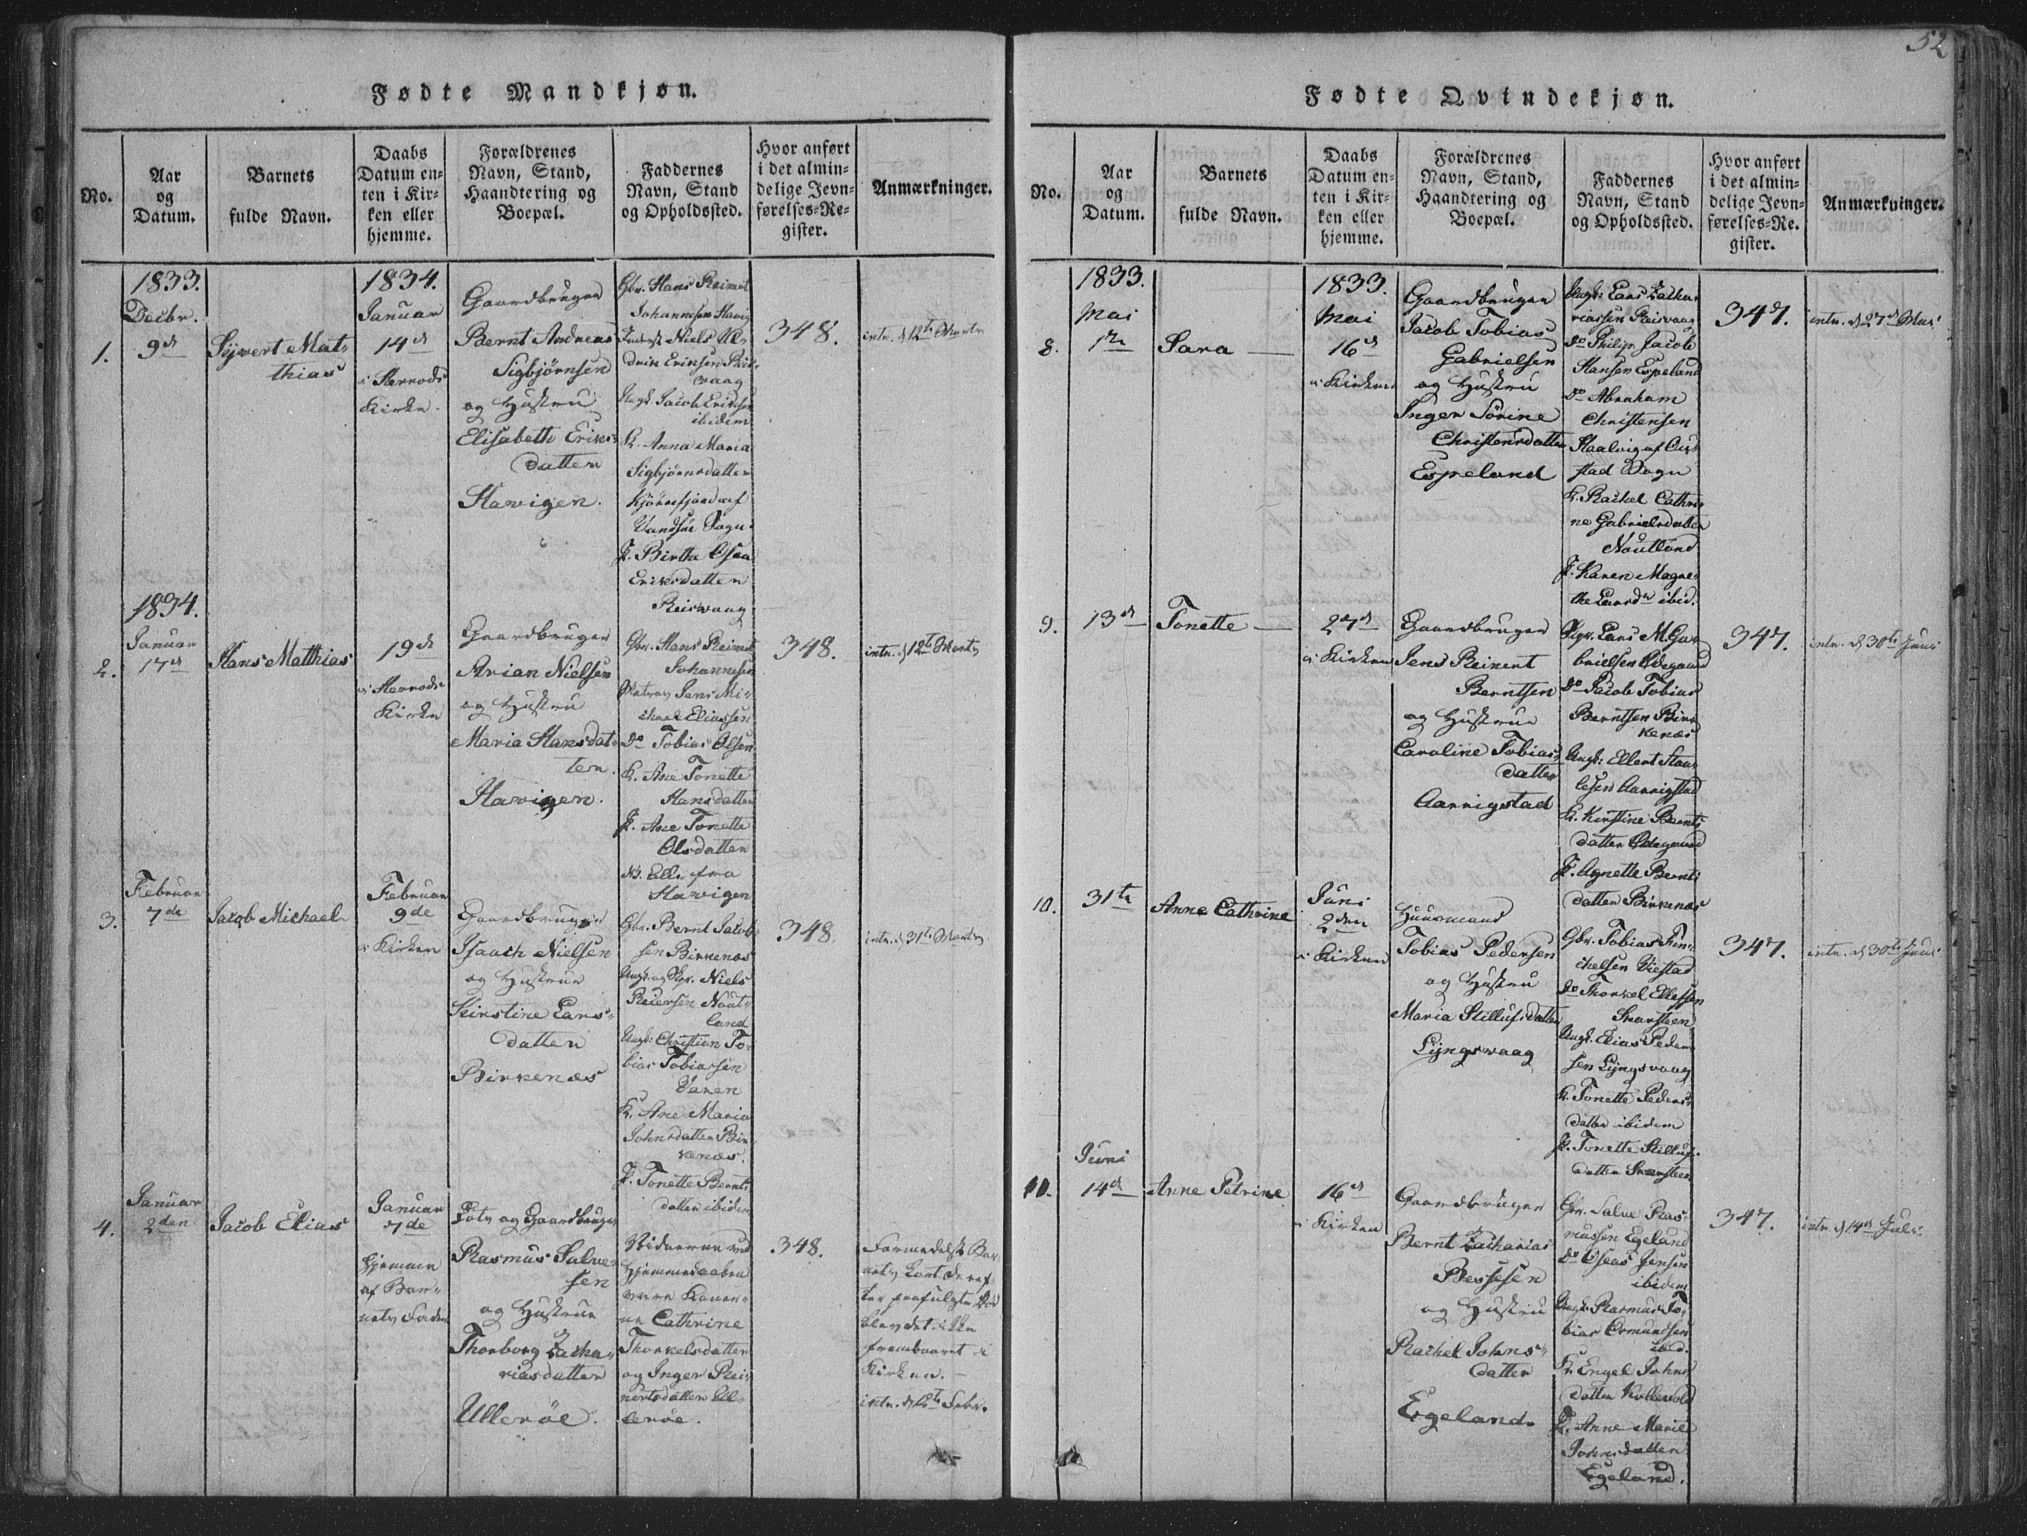 52
Fødte Mandkjøn.
No.
Aar
og
Datum.
Barnets
fulde Navn.
Daabs
Datum en-
ten i Kir-
ken eller
hjemme.
Forældrenes
Navn, Stand,
Haandtering og
Boepæl.
Faddernes
Navn, Stand
og Opholdssted.
Hvor anført
i det almin-
delige Jevn-
førelses-Re-
gister.
Anmærkninger.
1.
1833.
Decbr.
9de
Syvert Mat-
thias
1834.
Januar
14de
i
Kirke.
Gaardbruger
Bernt Andreas
Sigbjørnsen
og Hustru
Elisabeth Eriks-
datter
Havigen.
Gbr. Hans Reinert
Johannesen Havig
Niels
Eriksen
Ungk. Jacob Eriksen
ibidem
K. Anna Maria
Sigbjørnsdatter
af
Vandsøe Sogn
P. Birtha Osea
Eriksdatter
Reisvaag
348.
intr. d 12te Marts
2.
1834.
Januar
17de
Hans Matthias
19de
i
Kirke
Gaardbruger
Arian Nielsen
og Hustru
Maria Hansdat-
ter.
Havigen.
Gbr. Hans Reinert
Johannesen
Jens Mi-
chael Eliassen
do Tobias Olsen
K. Ane Tonette
Hansdatter
P. Ane Tonette
Olsdatter
fra
Havigen
348.
intr. d 12te Marts
3.
Februar
7de
Jacob Michael
Februar
9de
i Kirken
Gaardbruger
Isaach Nielsen
og Hustrue
Kirstine Lars-
datter
Birkenæs
Gbr. Bernt Jacob-
sen Birkenæs
Niels
Reiersen Nout-
land
Ungk. Christian To-
bias Tobiassen
Vaxen
K. Ane Maria
Johnsdatter Bir-
kenæs.
P. Tonette Bernts-
datter ibidem
348
intr. d 31te Marts
4.
Januar
2den
Jacob Elias
Januar
7de
hjemme
af Bar-
nets Fader
og Gaardbruger
Rasmus Salve-
sen
og Hustrue
Thorborg Zacha-
riasdatter
Ullerøe.
Vidnerne ved
Hjemmedaaben
vare Karen-
ne Cathrine
Thorkelsdatter
og Inger Rei-
nertsdatter Ul-
lerøe.
348.
Formedelst Bar-
nets kort deref-
ter paafulgte Død
blev det ikke
frembaaret i
Kirken.
intr. d Febr.
Fødte Qvindekjøn.
No.
Aar
og
Datum.
Barnets
fulde Navn.
Daabs
Datum en-
ten i Kir-
ken eller
hjemme.
Forældrenes
Navn, Stand,
Haandtering og
Boepæl.
Faddernes
Navn, Stand
og Opholdssted.
Hvor anført
i det almin-
delige Jevn-
førelses-Re-
gister.
Anmærkninger.
8.
1833.
Mai
1te
Sara
1833.
Mai
16de
i Kirken
Gaardbruger
Jacob Tobias
Gabrielsen
og Hustru
Inger Sørine
Christensdatter
Espeland
Ungk. Lars Zacha-
riassen Reisvaag
do Philip Jacob
Hansen Espeland
do Abraham
Christensen
Haalvig af Oe-
stad Sogn
K. Rachel Cathri-
ne Gabrielsdatter
Noutland
P. Karen Magre-
the Larsdr ibid.
347.
intr. d 27de Mai
9.
13de
Tonette
27de
i Kirken
Gaardbruger
Jens Reinert
Berntsen
og Hustrue
Caroline Tobias-
datter
Aarrigstad
Lars M. Ga-
brielsen Ødegaard
do Jacob Tobias
Berntsen Birk-
kenæs
Ungk. Ellert
Aarrigstad
K. Kirstine Bernts-
datter Ødegaard
P. Agnette Bernts-
datter Birkenæs
347.
intr. d 30te Juni
10.
31te
Anne Cathrine
Juni
2den
i Kirken
Huusmand
Tobias Pedersen
og Hustru
Maria Stillufsdatter
Lyngsvaag
Gbr. Tobias
Viestad
do Thorkel Ellefsen
Skarsteen
Ungk. Elias Peder-
sen Lyngsvaag
K. Tonette Peders-
datter ibidem
P. Tonette Stillufs-
datter Skarsteen
347.
intr. d 30te Juni
10.
Juni
14de
Anne Petrine
16de
i Kirken
Gaardbruger
Bernt Zacharias
Bessesen
og Hustru
Rachel Johns-
datter
Egeland.
Gbr. Salve Ras-
mussen Egeland
do Oseas Jensen
ibidem
Ungk. Rasmus To-
bias Osmundsen
ibid.
K. Engel Johns-
datter Kollevold
P. Anne Marie
Johnsdatter
Egeland.
347.
intr. d 14de Juli.